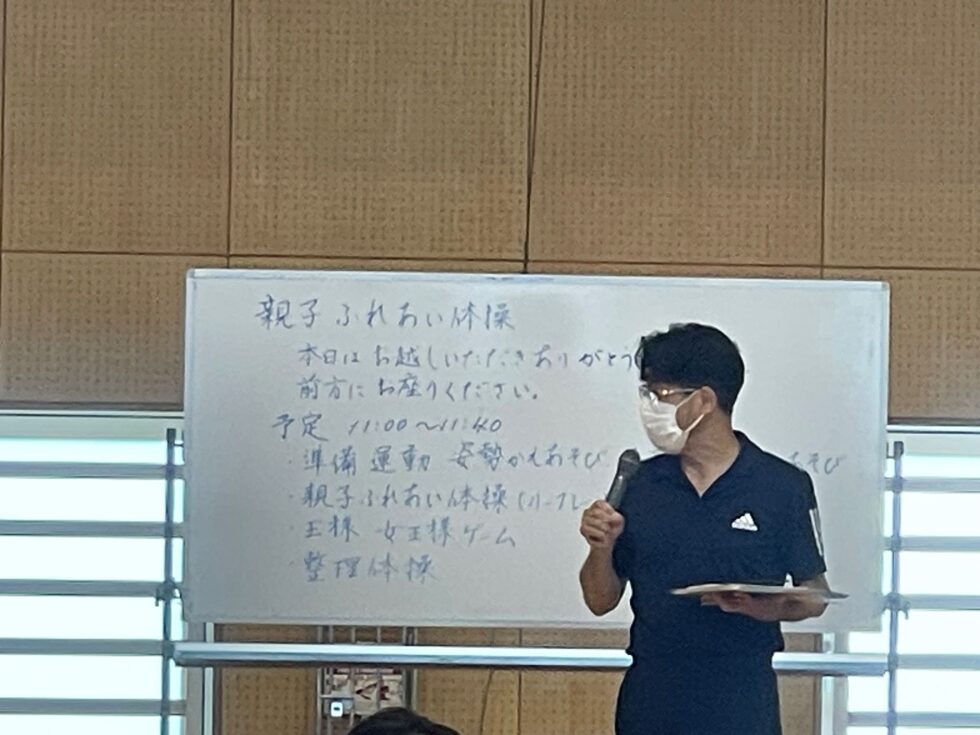 親子ふれあい体操
本日はお越しいただきありがとう
前方にお座りください。
予定 11:00～11:40
・準備運動 姿勢かえあそび あそび
・親子ふれあい体操
・王様 女王様ゲーム
・整理体操
adidas